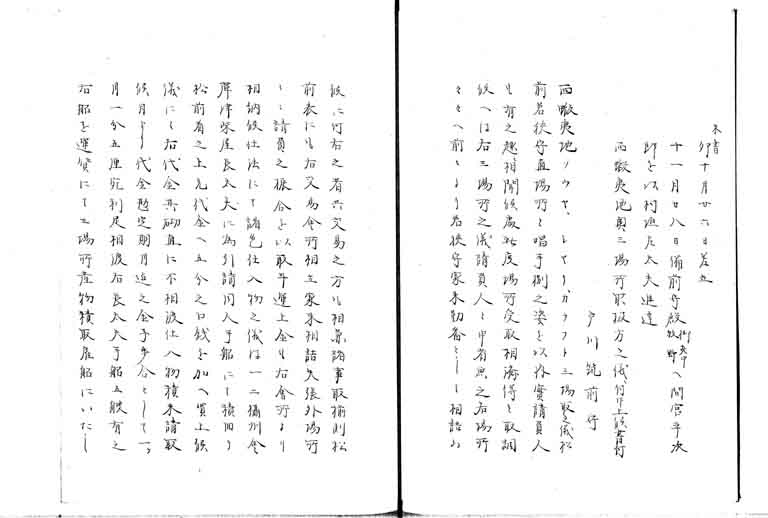 朱書
卯十月廿六日差出
十一月廿八日備前守殿 牧野 へ間宮平次
郎を以村進左太夫進達
西蝦夷地奥三場所取扱方之儀ニ付申上候書付
戸川筑前守
西蝦夷地ソウヤ、シヤリ、カラフト三場所之儀松
前若狭守直場所と唱手捌之姿を以外実請負人
も有之趣相聞候処此度場所受取相済得と取調
候へは右三場所之儀請負人と申者無之右場所
前々より若狭守家来勤番として相詰
候ニ付右之者共交易之方も相兼諸事取捌則松
前表にも右交易会所相立家来相詰矢張外場所
請負之振合を以取斗運上金も右会所より
相納候仕法にて諸色仕入物之儀は一二摂州兵
庫津柴屋長太夫に為引請同人手船にて積回り
松前着之上元代金へ五分之口銭を加へ買上候
儀にて右代金即直に不相渡仕入物積来請取
候月より代金勘定期月迄之金子歩合として一ヶ
月一分五厘宛利足相渡右長太夫手船五艘有之
右船を運賃にて三場所産物積取雇船にいたし